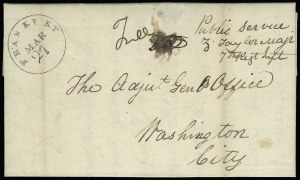 FRANKFT KY
MAR
27
Free
Public Service
Z. Taylor Majr
7th Regt Inft
The Adjut. Genl Office
Washington
City